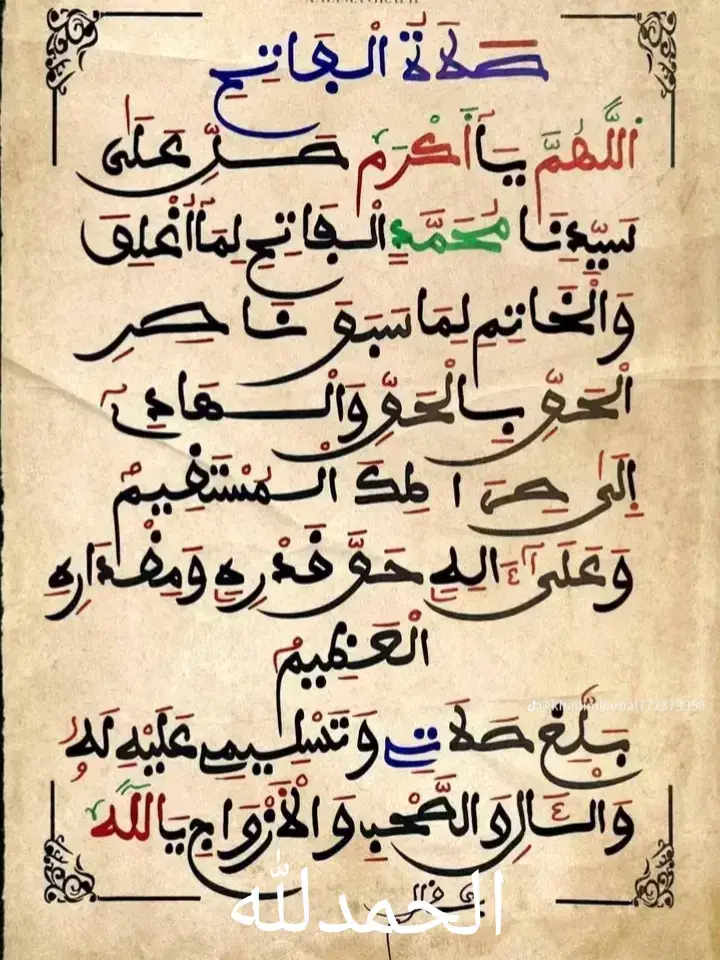 صَلَاةُ الْفَاتِحِ
اَللَّهُمَّ يَا أَكْرَمُ صَلِّ عَلَى
سَيِّدِنَا مُحَمَّدٍ الْفَاتِحِ لِمَا أُغْلِقَ
وَالْخَاتِمِ لِمَا سَبَقَ نَاصِرِ
الْحَقِّ بِالْحَقِّ وَالْهَادِي
إِلَى صِرَاطِكَ الْمُسْتَقِيمِ
وَعَلَى ءَالِهِ حَقَّ قَدْرِهِ وَمِقْدَارِهِ
الْعَظِيمِ
بَلِّغْ صَلَاتِي وَتَسْلِيمِي عَلَيْهِ لَهُ
وَالْـَٔالِ وَالصَّحْبِ وَالْأَزْوَاجِ يَا اللَّهُ
الحمدلله